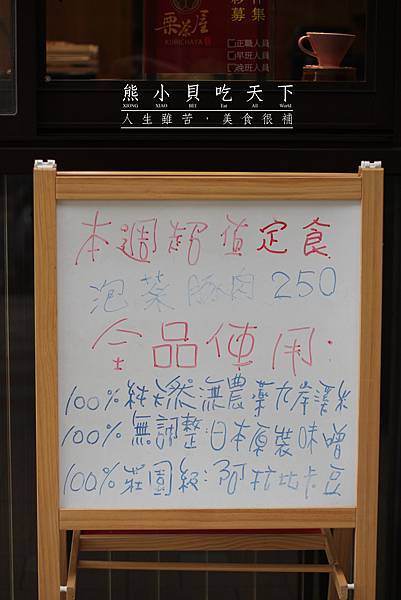 夥伴
募集
栗茶屋
KURICHAYA
□正職人員
□早班人員
□晚班人員
熊小貝吃天下
XIONG XIAO BEI Eat All World
人生雖苦,美食很補
本週超值定食
泡菜豚肉 250
全品使用:
100%純天然無農藥九岸溪米
100%無調整:日本原裝味噌
100%莊園級:阿拉比卡豆